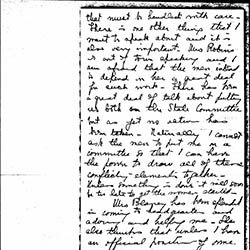 that must be handled with care.
There is one other things that I
want to speak about and it is
also very important. Mrs Robins
is out of town speaking and I
am afraid that the men intend
to depend on her a great deal
for such work. There has been
a great deal of talk about putting
us both on the State Committee
but as yet no action has
been taken. Naturally I cannot
ask the men to put me on a
committee so that I can have
the power to draw all of these
conflicting elements together.
Unless something is done it will soon
be too late to get the women started.
Mrs Blaney has been
in coming to headquarters and
helping me. She
also thinks that unless I have
an official position of some